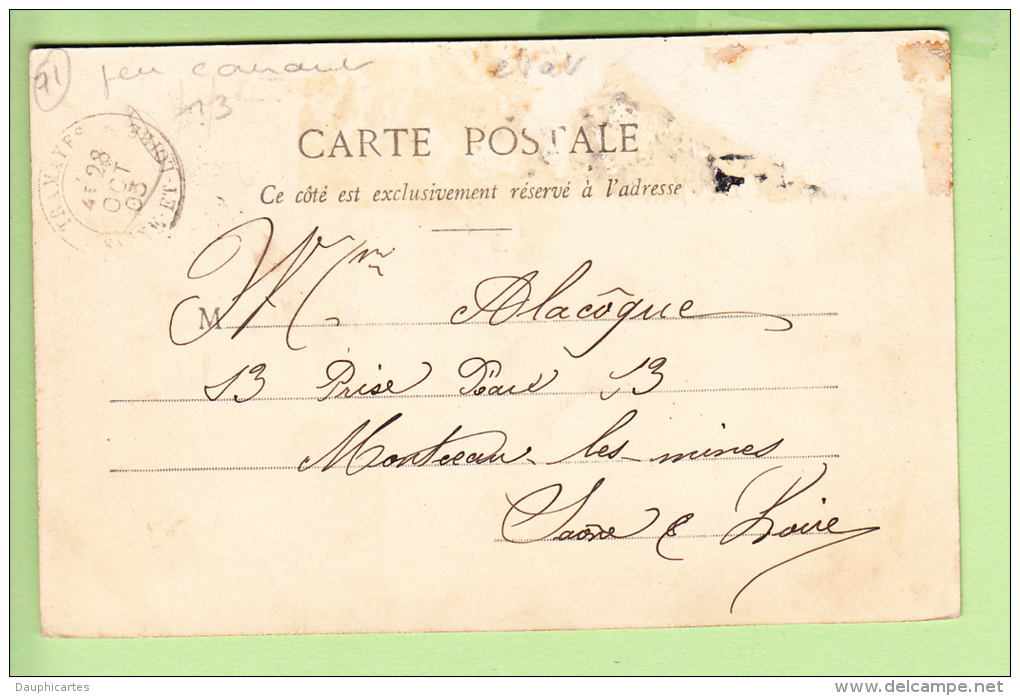 91 peu courant état
13
TRAMAYES
4E
28
OCT
03
SAÔNE-ET-LOIRE
CARTE POSTALE
Ce côté est exclusivement réservé à l'adresse
M Mme Alacôque
13 Prise D'eau 13
Montceau-les-mines
Saône & Loire
Dauphicartes
http://www.delcampe.net